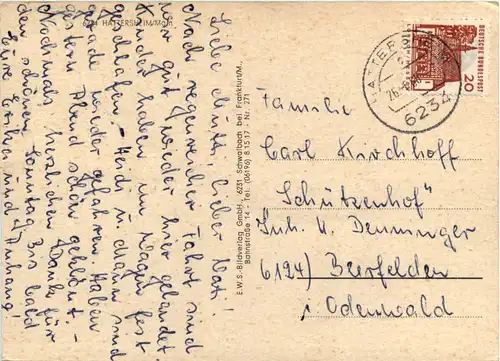 6234 HATTERSHEIM/Main
Liebe Mutti, lieber Vati!
Nach regenreicher Fahrt sind
wir gut wieder hier gelandet
Kinder haben im Wagen fest
geschlafen - Heidi u. Mann sind
gerade wieder gefahren. Haben
gestern Abend schön gehört.
Nochmals herzlichen Dank für
den schönen Sonntag. Bis bald
Eure und Anhang!
E.W.S.-Bildverlag GmbH., 6231 Schwalbach bei Frankfurt/M.,
Bahnstraße 14 - Tel. (06196) 81517 Nr. 271
HATTERSHEIM
6234
DEUTSCHE BUNDESPOST
20
Familie
Carl Kirchhoff
„Schützenhof"
Inh. H. Denninger
6124) Beerfelden
i. Odenwald